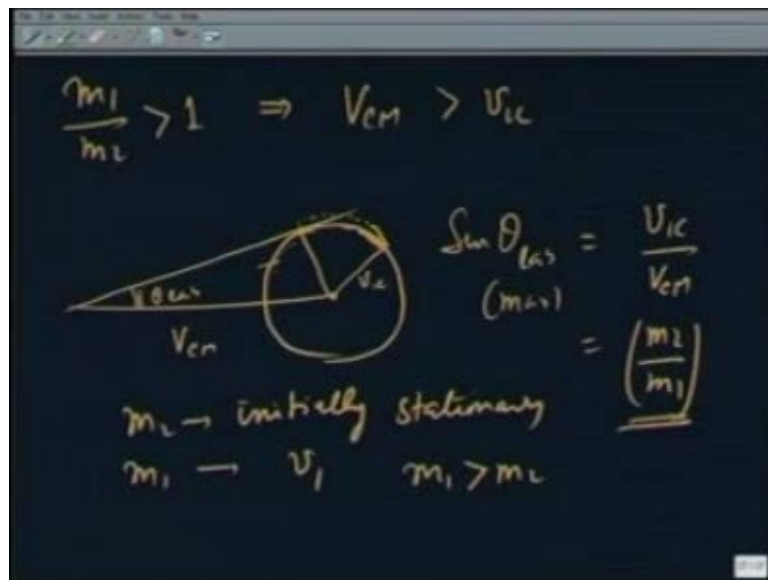 m1/m2 > 1 ⇒ VCM > v1c
Sin θ Lab (max) = v1c/VCM
θ Lab
vc
VCM
= (m2/m1)
m2 → initially stationary
m1 — v1 m1 > m2